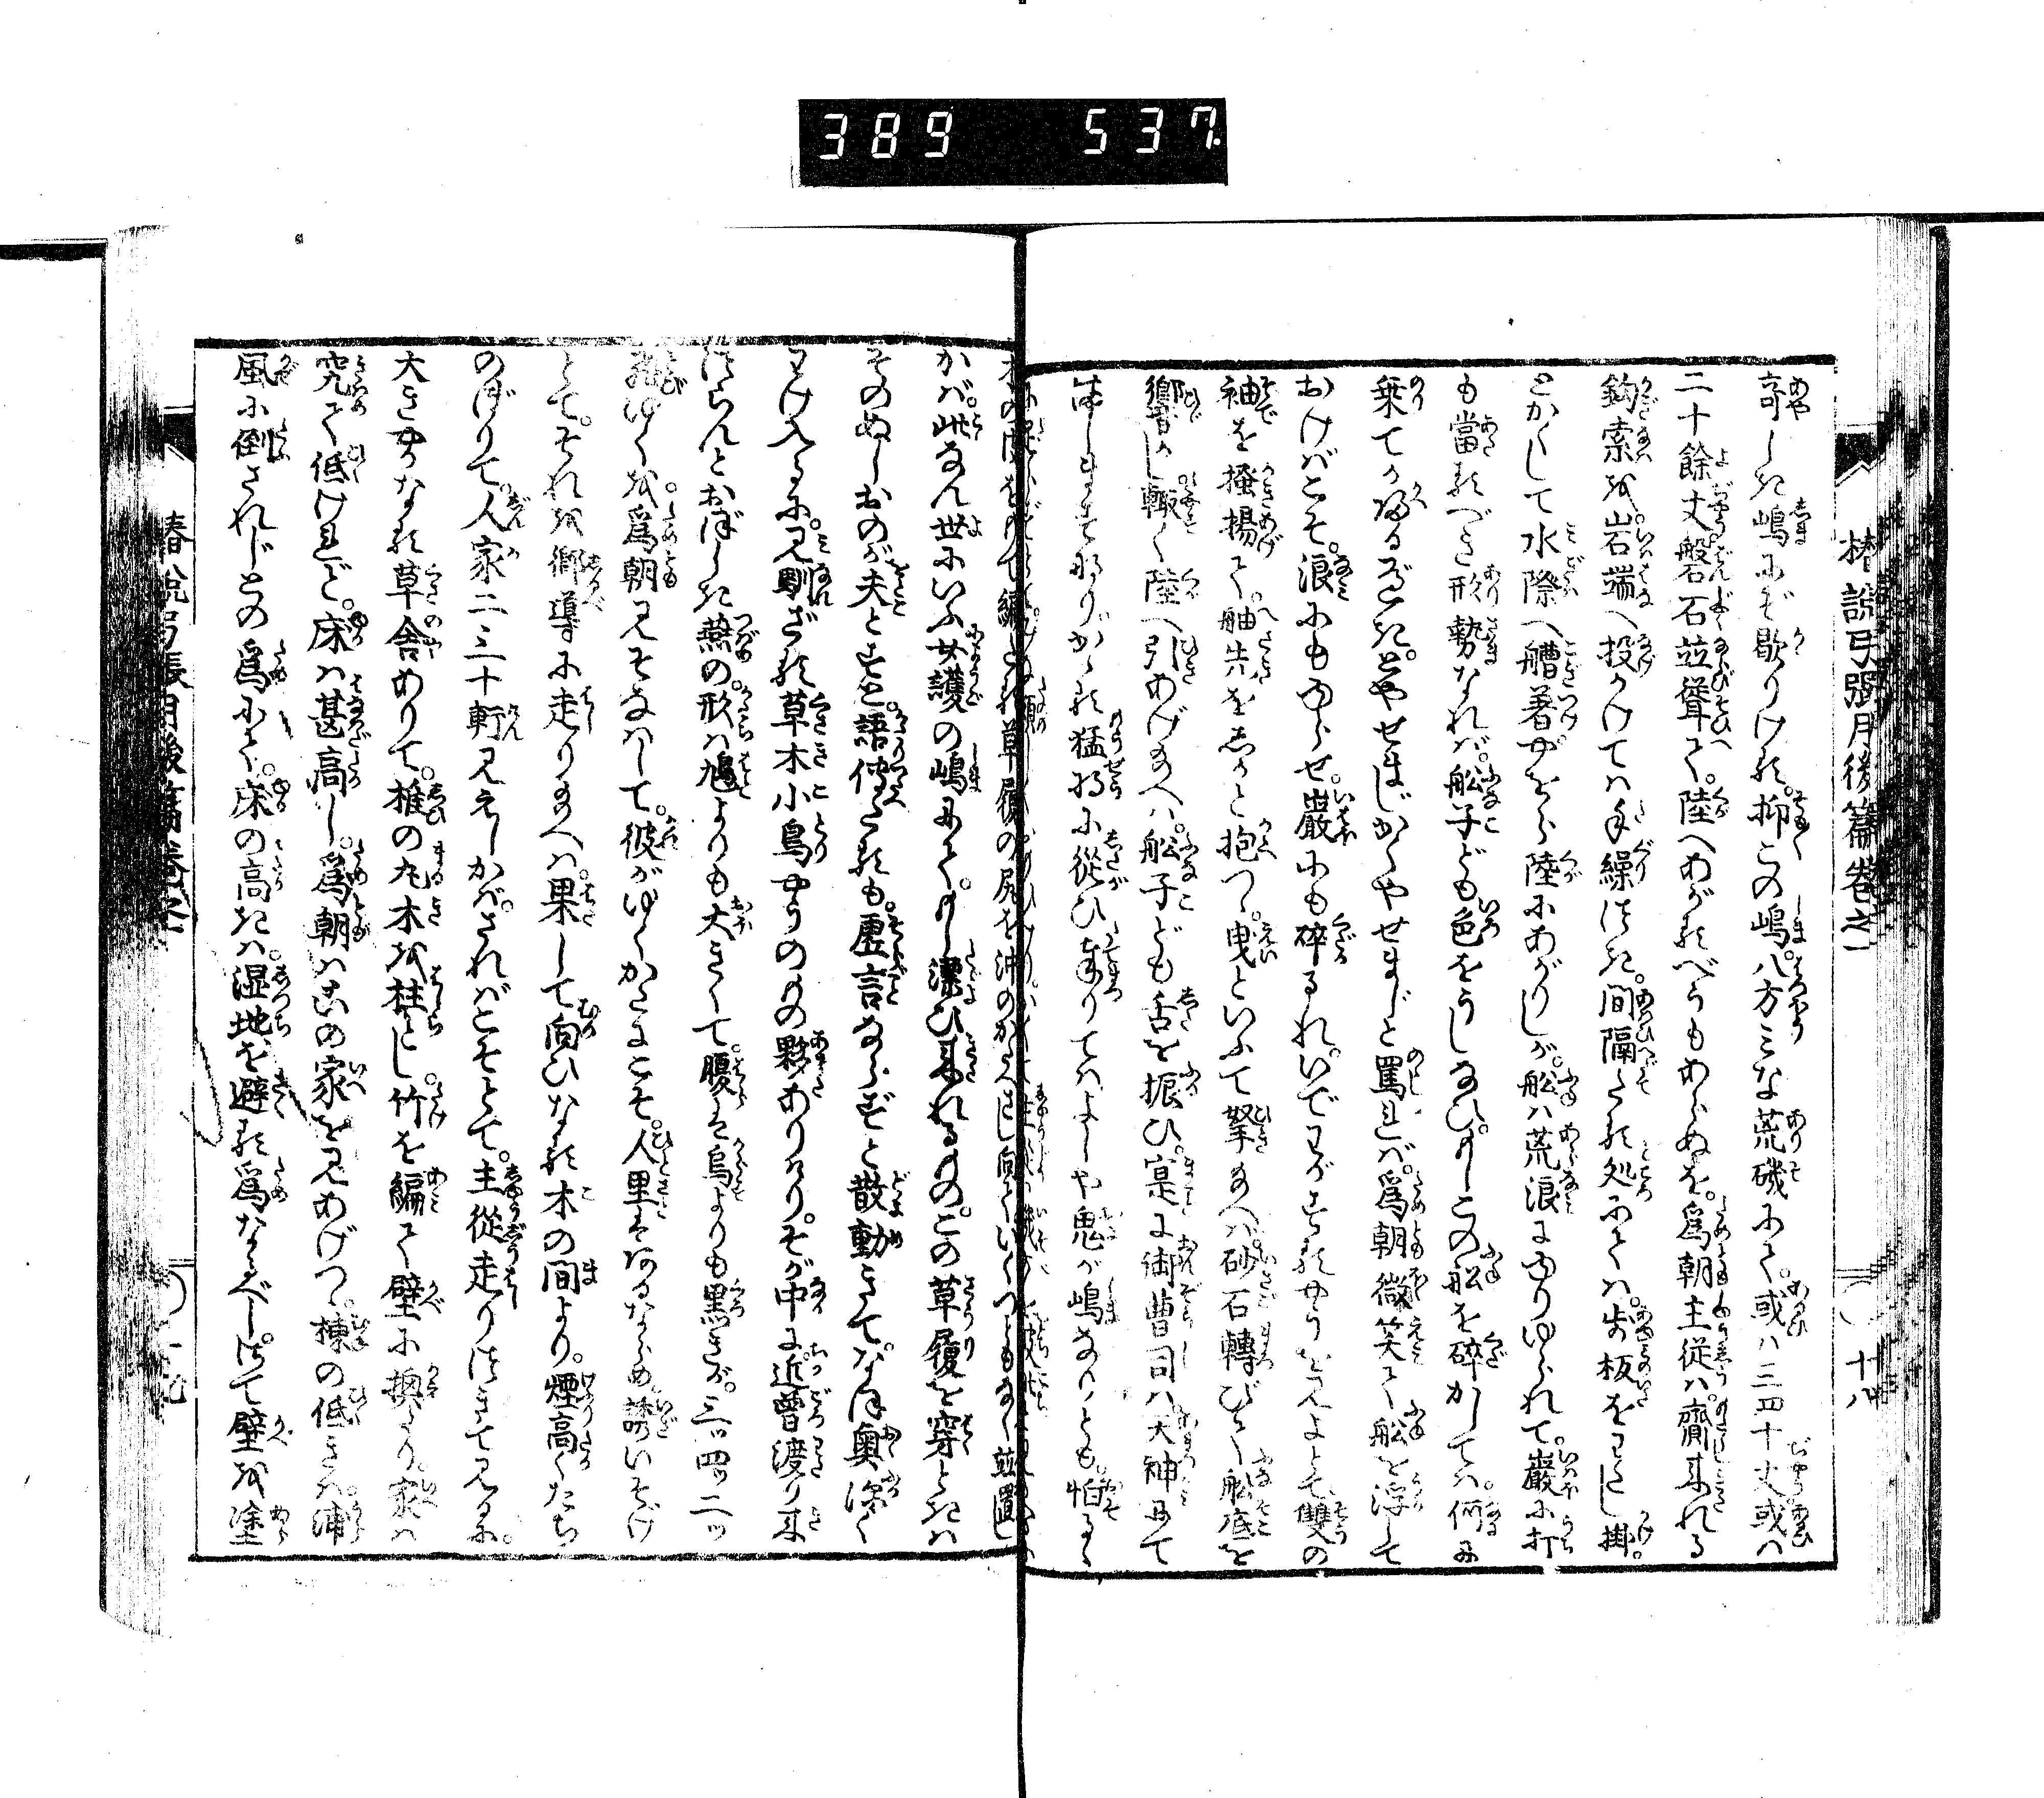 389 537
椿説弓張月後篇巻之一
十八
奇しき嶋にぞ歇りける。抑この嶋。八方みな荒磯にて。或ハ三四十丈或ハ
二十餘丈。磐石竝聳て。陸へあがるべうもあらぬを。為朝主従ハ。齎来れる
鈎索を。岩端へ投かけてハ手繰つき。間隔たる処にてハ。歩板をわたし掛。
とかくして水際へ艚著やをら陸にあがりしが。船ハ荒浪にゆりゆられて。巌に打
も當るべき形勢なれバ。船子ども色をうしなひ。もしこの船を碎かしてハ。何に
乗てか還るべき。とやせまじかくやせまじと罵れバ。為朝微笑て船を浮して
おけバこそ。浪にもゆらせ。巌にも碎るれ。いでわがするやうを見よとて。雙の
袖を掻揚て。舳先をしかと抱つゝ。曳といふて拏給へバ。砂石轉びて船底を
響かし輙く陸へ引あげ給へバ。船子ども舌を振ひ。寔に御曹司ハ大神にて
ましますなり。かゝる猛将に従ひ奉りてハよしや鬼が嶋なりとも。怕るゝ
かバ。此なん世にいふ女護の嶋にて。もし漂ひ来れるもの。この草履を穿ときハ
そのぬしおのが夫とすと。語伝たるも。虚言ならずと散動きて。なほ奥深く
わけ入るに。見馴ざる草木小鳥やうのもの夥ありけり。そが中に近曽渡り来
つらんとおぼしき燕の。形ハ鳩よりも大きくて。腹は烏よりも黒きが。三ッ四ッ二ッ
飛ゆくを。為朝見そなハして。彼がゆくかたにこそ。人里はあるならめ。誘いそげ
とて。それを郷導に走り給へハ。果して向ひなる木の間より。煙高くたち
のぼりて。人家二三十軒見えしかバ。さればこそとて。主従走りつきて見るに。
大きやかなる草舎ありて。椎の丸木を柱とし。竹を編て壁に換たり。家ハ
究て低けれど。床ハ甚高し。為朝ハこの家を見あげつゝ。棟の低きハ浦
風に倒されじとの為にて。床の高きハ。湿地を避る為なるべし。さて壁を塗
椿説弓張月後篇巻之一
十九